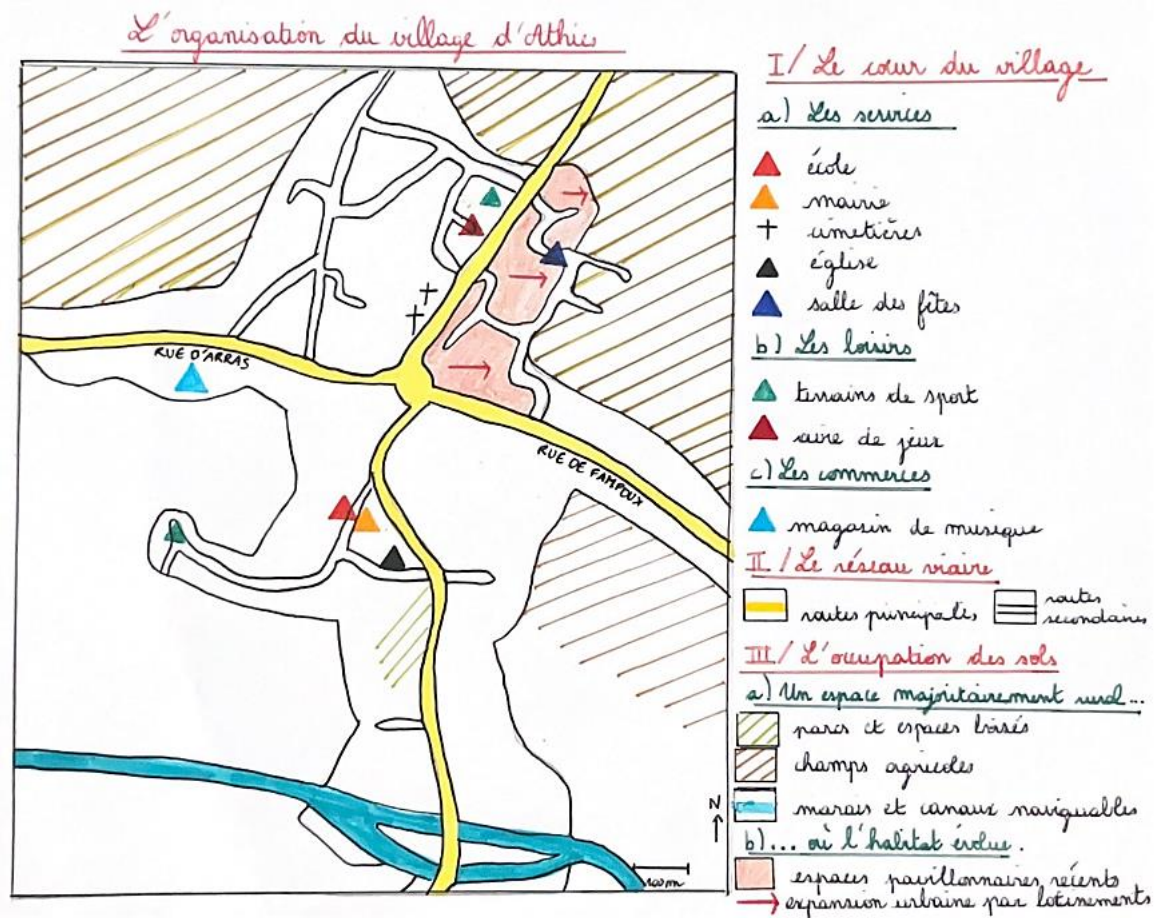 L'organisation du village d'Athies
RUE D'ARRAS
RUE DE FAMPOUX
N
100m
I/ Le cœur du village
a) Les services
école
mairie
cimetières
église
salle des fêtes
b) Les loisirs
terrains de sport
aire de jeux
c) Les commerces
magasin de musique
II/ Le réseau viaire
routes principales
routes
secondaires
III/ L'occupation des sols
a) Un espace majoritairement rural...
parcs et espaces boisés
champs agricoles
marais et canaux naviguables
b)... où l'habitat évolue.
espaces pavillonnaires récents
expansion urbaine par lotissements